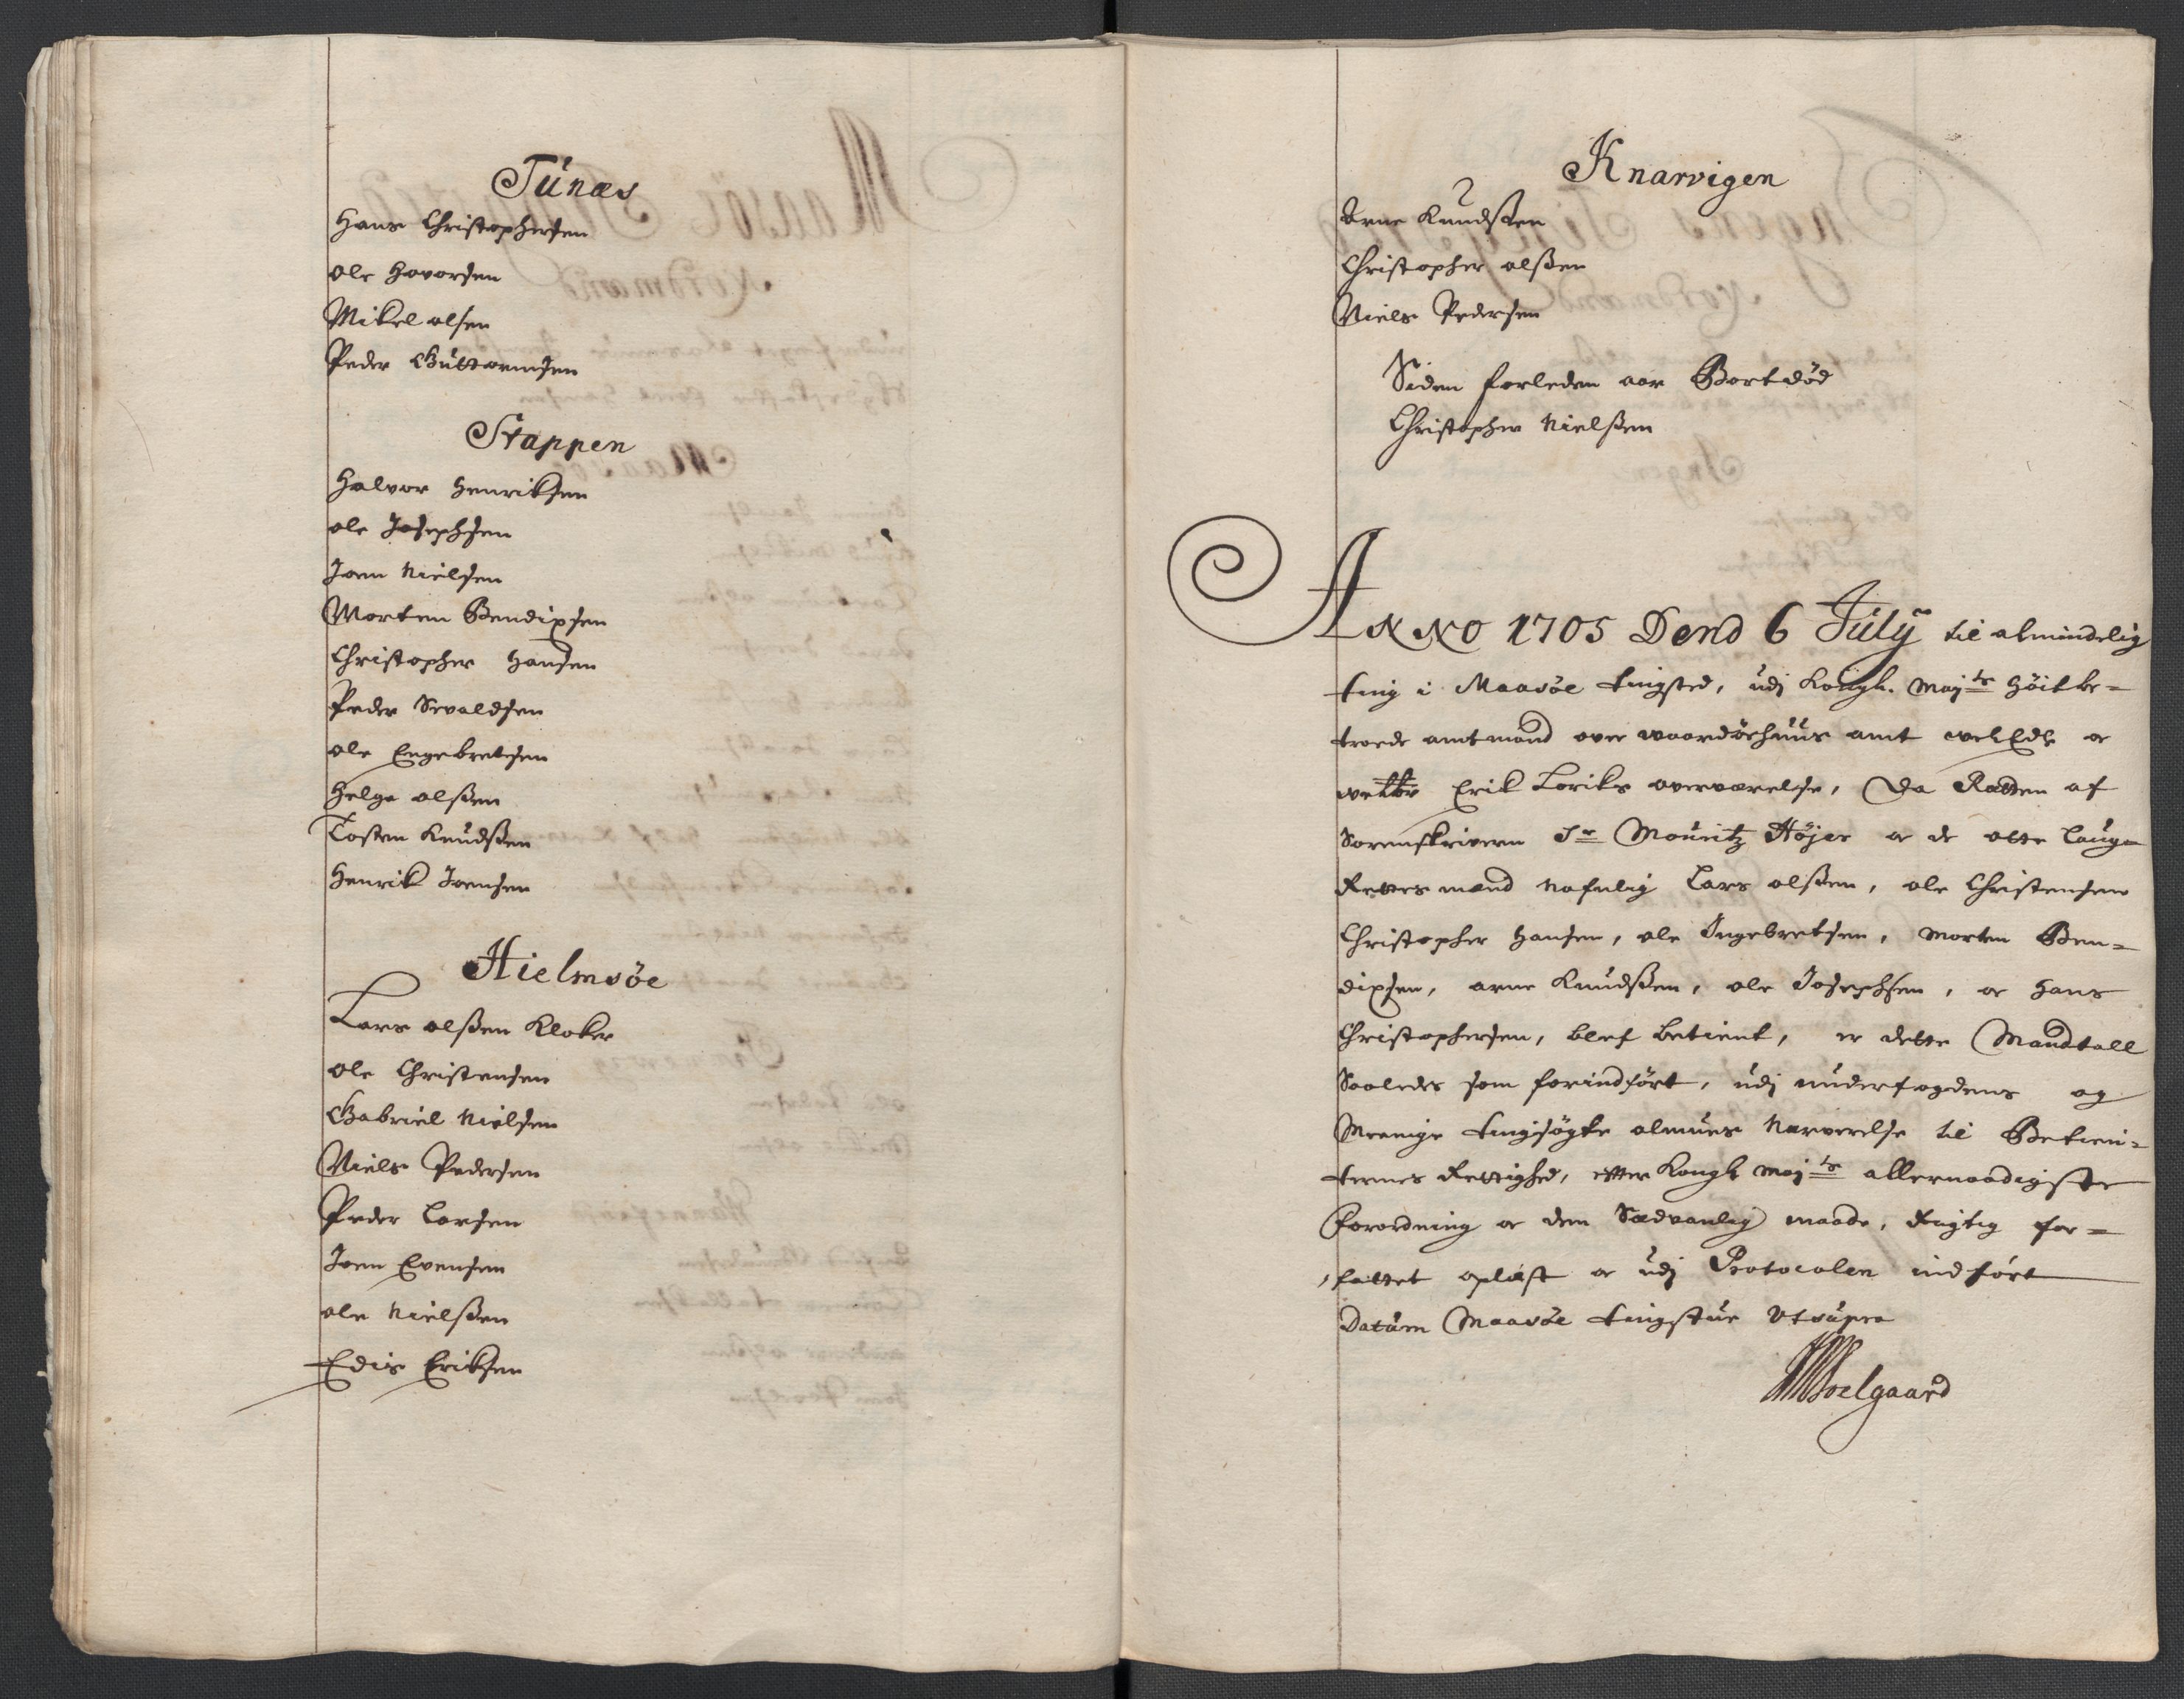 Tunæs
Hans Christophersen
Ole Havorsen
Mikel olsen
Peder Guttormsen
Stappen
Halvor Henriksen
ole Josephsen
Joen Nielsen
Morten Bendixsen
Christopher Hansen
Peder Sevaldsen
ole Engebretsen
Helge olßen
Tosten Knudßen
Henrik Joensen
Hielmsöe
Lars olßen Kloker
Ole Christensen
Gabriel Nielsen
Niels Pedersen
Peder Larsen
Joen Evensen
ole Nielßen
Edis Eriksen
Knarvigen
Arne Knudßen
Christopher olßen
Niels Pedersen
Siden forleden aar Bortdød
Christopher Nielßen
ANNO 1705 Dend 6 July til almindelig
ting i Maasöe tingsted, udj Kongl. Mayts Höitbe=
troede amtmand over waardöehuus amt welEdle oc
Erik Loriks overværelse, Da Retten af
Sorenskriveren Sr Mouritz Höjer oc de otte Laug
Rettes mænd Nafnlig Lars olßen, ole Christensen
Christopher Hansen, ole Ingebretsen, Morten Ben=
dixsen, arne Knudßen, ole Josephsen, oc Hans
Christophersen, blef betient, er dette Mandtall
Saaledes som forindfört, udj underfogdens og
Meenige tingsögte almues Nærverelse til Betien=
ternes Rettighed, efter Kongl Mayts allernaadigste
Forordning oc den Sædvanlig maade, Rigtig for=
fattet oplæst oc udj Protocolen indfört
Datum Maasöe tingstue Utsupra
Soelgaard